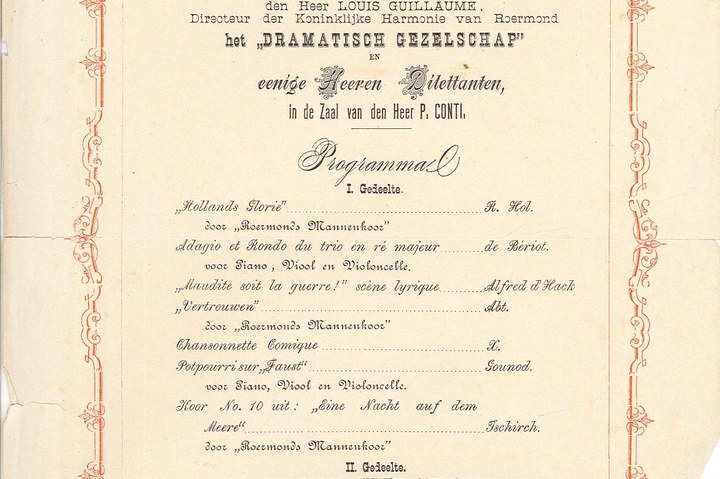 den Heer LOUIS GUILLAUME,
Directeur der Koninklijke Harmonie van Roermond
het „DRAMATISCH GEZELSCHAP”
EN
eenige Heeren Dilettanten,
in de Zaal van den Heer P. CONTI.
Programma
I. Gedeelte.
„Hollands Glorie” R. Hol.
door „Roermonds Mannenkoor”
Adagio et Rondo du trio en ré majeur de Bériot.
voor Piano, Viool en Violoncelle.
„Maudite soit la guerre!” scène lyrique Alfred d'Hack
„Vertrouwen” Abt.
door „Roermonds Mannenkoor”
Chansonnette Comique X.
Potpourri sur „Faust” Gounod.
voor Piano, Viool en Violoncelle.
Koor No. 10 uit: „Eine Nacht auf dem
Meere” Tschirch.
door „Roermonds Mannenkoor”
II. Gedeelte.